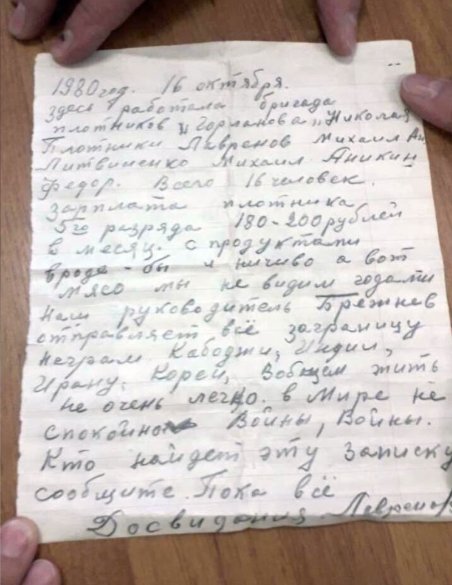 1980 год. 16 октября.
здесь работала бригада
плотников "Горланова" Николая
Плотники Лавренов Михаил
Литвиненко Михаил Аникин
Федор. Всего 16 человек.
Зарплата плотника
5го разряда 180-200 рублей
в месяц. с продуктами
вроде-бы и ничиво а вот
мясо мы не видим годами
наш руководитель Брежнев
отправляет всё заграницу
неграм. Кабоджи, Индии,
Ирану, Кореи, Вобщем жить
не очень легко. в Мире не
спокойно Войны, Войны.
Кто найдет эту Записку
сообщите. Пока всё
Досвидания. Лавренов